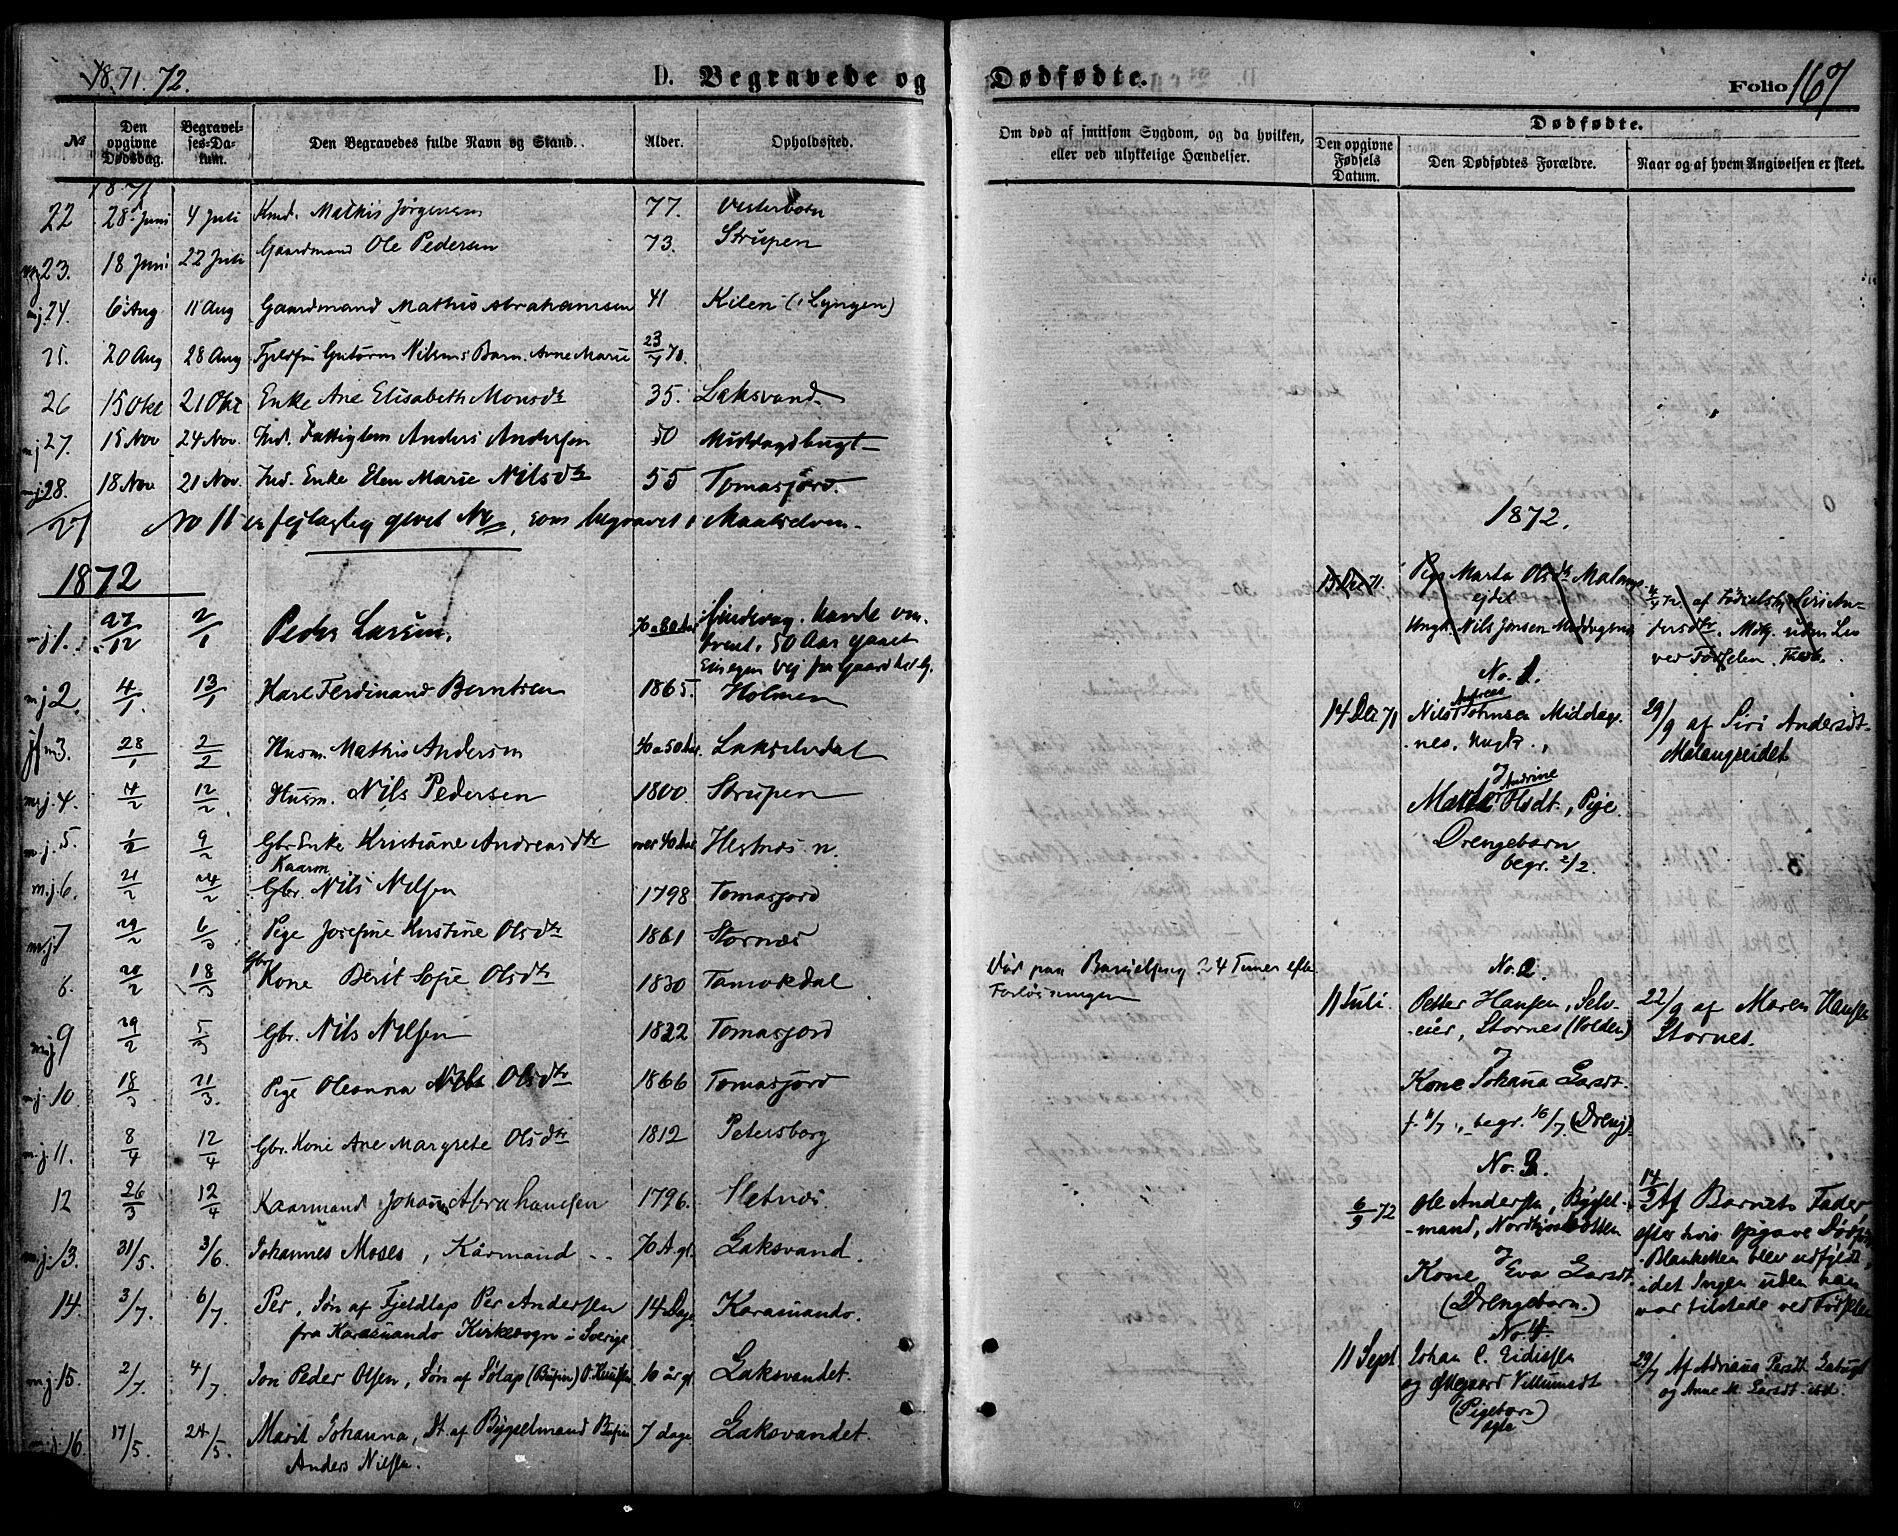 1871. 72.
D. Begravede og
Dødfødte.
Folio 167
No
Den opgivne Dødsdag.
Begravelses-Datum.
Den Begravedes fulde Navn og Stand.
Alder.
Opholdssted.
Om død af smitsom Sygdom, og da hvilken, eller ved ulykkelige Hændelser.
Dødfødte.
Den opgivne Fødsels Datum.
Den Dødfødtes Forældre.
Naar og af hvem Angivelsen er skeet.
1871
22 28 Juni 4 Juli Mathis Jørgensen 77. Vesterbotn
23. 18 Juni 22 Juli Gaardmand Ole Pedersen 73. Strupen
24. 6 Aug 11 Aug Gaardmand Mathis Abrahamsen 41 Kilen (i Lyngen)
25. 20 Aug 28 Aug Guttorm Nilsens Barn Anne Marie
26 15 Okt 21 Okt Enke Ane Elisabeth Monsdtr 35. Laksvand
mj 27. 15 Nov 24 Nov. Ind. Fattiglem Anders Andersen 50 Middagsbugt
mj 28. 18 Nov 21 Nov. Ind. Enke Elen Marie Nilsdtr 55 Tomasjord.
27 No 11 er fejlagtig givet No, som begravet i Maalselven.
1872
mj 1. 27/12 2/1 Peder Larsen. 70 a 80 Aar
50 Aar gaaet
mj 2. 4/1 13/1 Karl Ferdinand Berntsen 1865. Holmen
3. 28/1 2/2 Husm. Mathis Andersen 40 a 50 Aar. Lakselvdal
mj. 4. 4/2 12/2 Husm. Nils Pedersen 1800. Strupen
m.j. 5. 1/2 9/2 Gbr. Enke Kristiane Andreasdtr over 40 Aar Hestnes n.
Kaarm.
m.j. 6. 21/2 24/2 Gbr. Nils Nilsen 1798 Tomasjord
m.j. 7 29/2 6/3 Pige Josefine Kirstine Olsdtr 1861 Stornes
8. 20/2 18/3 Gbr. Kone Berit Sofie Olsdtr 1830 Tamokdal
mj 9 29/2 5/3 Gbr. Nils Nilsen 1822 Tomasjord
mj. 10. 18/3 21/3. Pige Oleanna Olsdtr 1866 Tomasjord
m.j. 11. 8/4 12/4 Gbr. Kone Ane Margrete Olsdtr 1812 Petersborg
12 26/3 12/4 Kaarmand Johan Abrahamsen 1796. Sletnes
mj. 13. 31/5. 3/6 Johannes Moses, Kårmand 70 A gl. Laksvand.
14. 3/7. 6/7. Per, Søn af Fjeldlap Per Andersen 14 Dage Karasuando.
fra Karasuando Kirkesogn i Sverige
mj. 15. 2/7. 4/7. Jon Peder Olsen, Søn af Sølap 10 år gl. Laksvandet.
16. 17/5. 24/5. Marit Johanna, Dt. af Bygselmand 7 dage Laksvandet.
Anders Nilsen.
1872.
15 Dec 71. Pige Marta Olsdtr Malangs-
ejdet
Ungk. Nils Jensen Middagsnes
No. 1.
14 Dec 71 Nils Johnsen Middags-
nes, Ungk.,
29/9 af Siri Andersdt
Malangseidet
Pige.
Drengebarn
begr. 2/2.
Død paa Barselseng 24 Timer efter
Forløsningen
No. 2.
11 Juli. Petter Hansen, Selv-
eier, Stornes (Volden)
22/9 af Maren Hansen
Stornes.
Kone Johana Larsdt.
f. 11/7, begr. 16/7. (Dreng).
No. 3.
6/9 72 Ole Andersen, Bygsel-
mand, Nordkjosbotten
Kone Eva Larsdt
(Drengebarn.)
14/9 Af Barnets Fader,
efter hvis Opgave Dødfø
Blanketten blev udfyldt,
idet Ingen uden han
var tilstede ved Fødselen
No. 4
11 Sept Johan C. Eidissen
og Ovegaard Villumsdt
(Pigebarn)
29/9 Af Adriana Persdt
og Anne M. Larsdt